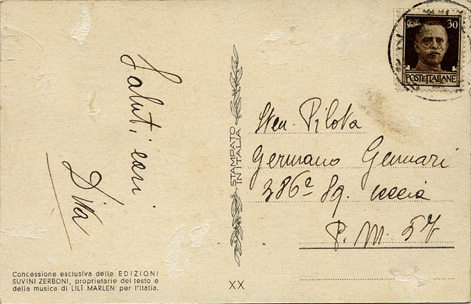 Saluti cari
Diva
Concessione esclusiva delle EDIZIONI
SUVINI ZERBONI, proprietarie del testo e
della musica di LILÌ MARLEN per l'Italia.
STAMPATO
IN ITALIA
XX
30
POSTE ITALIANE
Sten. Pilota
Germano Gennari
386ª Sq. caccia
P. M. 57